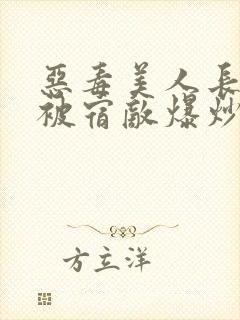 惡毒美人長
被宿敵爆炒
方立洋